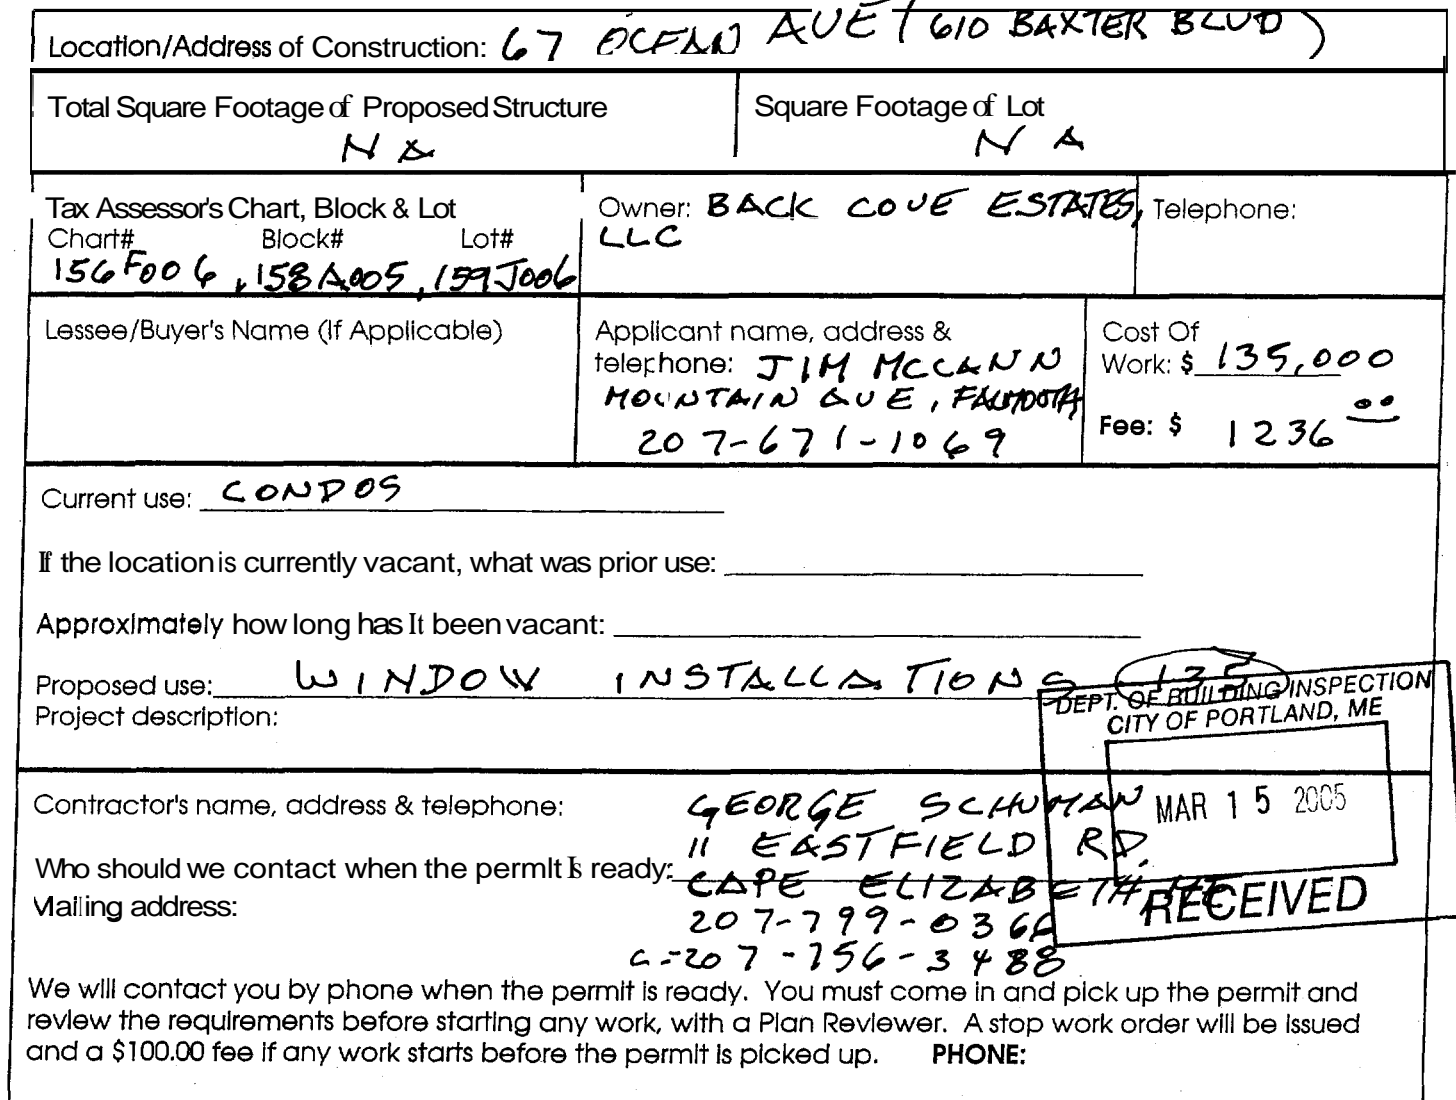 Location/Address of Construction: 67 OCEAN AVE (610 BAXTER BLVD)
Total Square Footage of Proposed Structure
NA
Square Footage of Lot
NA
Tax Assessor's Chart, Block & Lot
Chart# Block# Lot#
156F006, 158A005, 159J006
Owner: BACK COVE ESTATES,
LLC
Telephone:
Lessee/Buyer's Name (If Applicable)
Applicant name, address &
telephone: JIM MCCANN
MOUNTAIN AVE, FALMOUTH
207-671-1069
Cost Of
Work: $ 135,000
Fee: $ 1236 00
Current use: CONDOS
If the location is currently vacant, what was prior use:
Approximately how long has It been vacant:
Proposed use: WINDOW INSTALLATIONS 135
Project description:
DEPT. OF BUILDING INSPECTION
CITY OF PORTLAND, ME
MAR 15 2005
RECEIVED
Contractor's name, address & telephone: GEORGE SCHUMAN
11 EASTFIELD RD.
Who should we contact when the permit Is ready: CAPE ELIZABETH, ME
Mailing address:
207-799-0366
C-207-756-3488
We will contact you by phone when the permit is ready. You must come in and pick up the permit and
review the requirements before starting any work, with a Plan Reviewer. A stop work order will be issued
and a $100.00 fee if any work starts before the permit is picked up. PHONE: